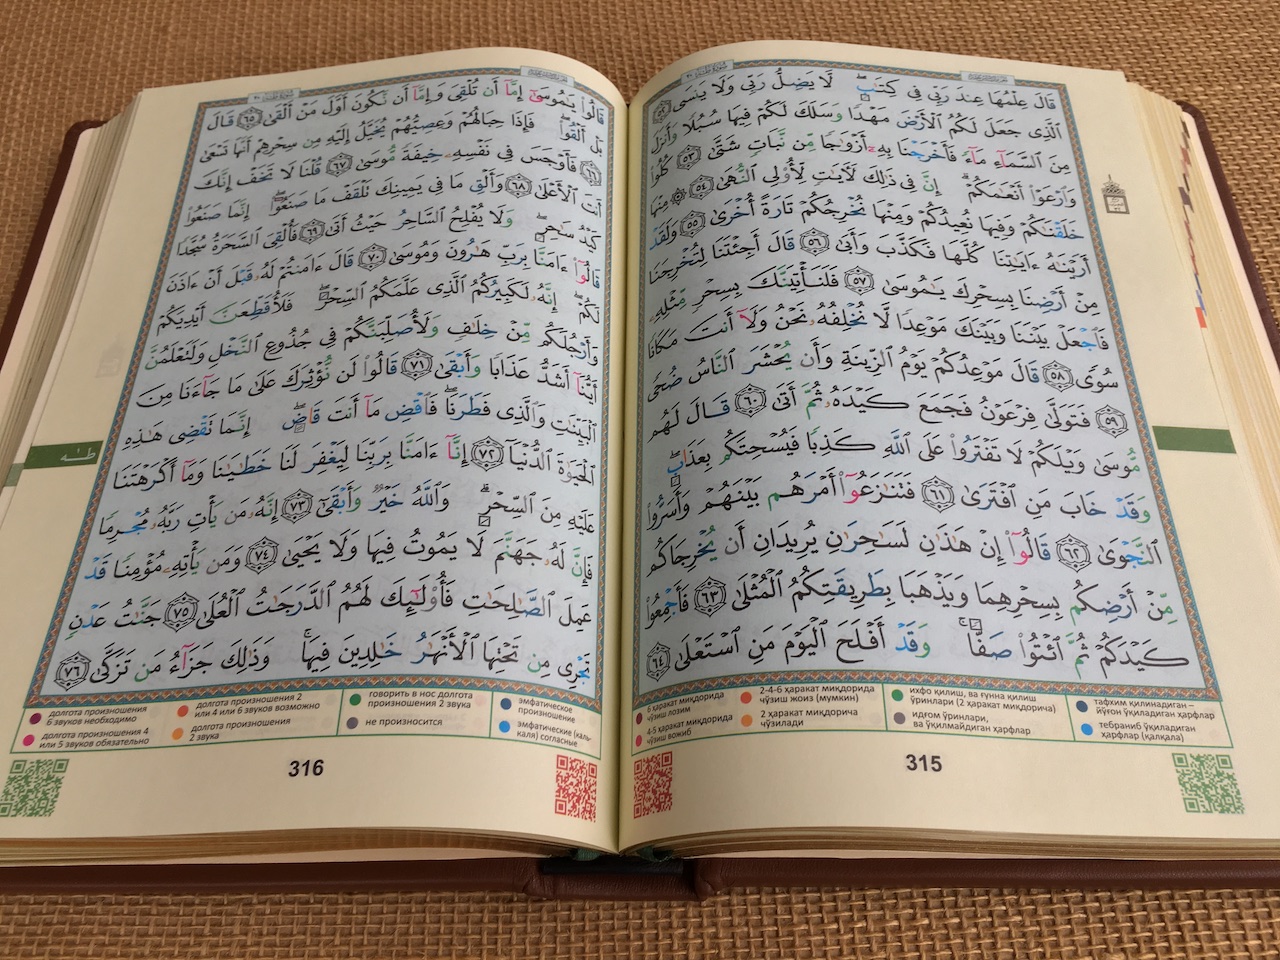 قَالَ عِلْمُهَا عِندَ رَبِّى فِى كِتَـٰبٍۖ لَّا يَضِلُّ رَبِّى وَلَا يَنسَى ٥٢
ٱلَّذِى جَعَلَ لَكُمُ ٱلْأَرْضَ مَهْدًا وَسَلَكَ لَكُمْ فِيهَا سُبُلًا وَأَنزَلَ
مِنَ ٱلسَّمَآءِ مَآءً فَأَخْرَجْنَا بِهِۦٓ أَزْوَٰجًا مِّن نَّبَاتٍ شَتَّىٰ ٥٣ كُلُوا۟
وَٱرْعَوْا۟ أَنْعَـٰمَكُمْۗ إِنَّ فِى ذَٰلِكَ لَـَٔايَـٰتٍ لِّأُو۟لِى ٱلنُّهَىٰ ٥٤ ۞ مِنْهَا
خَلَقْنَـٰكُمْ وَفِيهَا نُعِيدُكُمْ وَمِنْهَا نُخْرِجُكُمْ تَارَةً أُخْرَىٰ ٥٥ وَلَقَدْ
أَرَيْنَـٰهُ ءَايَـٰتِنَا كُلَّهَا فَكَذَّبَ وَأَبَىٰ ٥٦ قَالَ أَجِئْتَنَا لِتُخْرِجَنَا
مِنْ أَرْضِنَا بِسِحْرِكَ يَـٰمُوسَىٰ ٥٧ فَلَنَأْتِيَنَّكَ بِسِحْرٍ مِّثْلِهِۦ
فَٱجْعَلْ بَيْنَنَا وَبَيْنَكَ مَوْعِدًا لَّا نُخْلِفُهُۥ نَحْنُ وَلَآ أَنتَ مَكَانًا
سُوًى ٥٨ قَالَ مَوْعِدُكُمْ يَوْمُ ٱلزِّينَةِ وَأَن يُحْشَرَ ٱلنَّاسُ ضُحًى
٥٩ فَتَوَلَّىٰ فِرْعَوْنُ فَجَمَعَ كَيْدَهُۥ ثُمَّ أَتَىٰ ٦٠ قَالَ لَهُم
مُّوسَىٰ وَيْلَكُمْ لَا تَفْتَرُوا۟ عَلَى ٱللَّهِ كَذِبًا فَيُسْحِتَكُم بِعَذَابٍۖ
وَقَدْ خَابَ مَنِ ٱفْتَرَىٰ ٦١ فَتَنَـٰزَعُوٓا۟ أَمْرَهُم بَيْنَهُمْ وَأَسَرُّوا۟
ٱلنَّجْوَىٰ ٦٢ قَالُوٓا۟ إِنْ هَـٰذَٰنِ لَسَـٰحِرَٰنِ يُرِيدَانِ أَن يُخْرِجَاكُم
مِّنْ أَرْضِكُم بِسِحْرِهِمَا وَيَذْهَبَا بِطَرِيقَتِكُمُ ٱلْمُثْلَىٰ ٦٣ فَأَجْمِعُوا۟
كَيْدَكُمْ ثُمَّ ٱئْتُوا۟ صَفًّاۚ وَقَدْ أَفْلَحَ ٱلْيَوْمَ مَنِ ٱسْتَعْلَىٰ ٦٤
6 ҳаракат миқдорида чўзиш лозим
4-5 ҳаракат миқдорида чўзиш вожиб
2-4-6 ҳаракат миқдорида чўзиш жоиз (мумкин)
2 ҳаракат миқдорича чўзилади
ихфо қилиш, ва ғунна қилиш ўринлари (2 ҳаракат миқдорича)
идғом ўринлари, ва ўқилмайдиган ҳарфлар
тафхим қилинадиган – йўғон ўқиладиган ҳарфлар
тебраниб ўқиладиган ҳарфлар (қалқала)
315
قَالُوا۟ يَـٰمُوسَىٰٓ إِمَّآ أَن تُلْقِىَ وَإِمَّآ أَن نَّكُونَ أَوَّلَ مَنْ أَلْقَىٰ ٦٥ قَالَ
بَلْ أَلْقُوا۟ۖ فَإِذَا حِبَالُهُمْ وَعِصِيُّهُمْ يُخَيَّلُ إِلَيْهِ مِن سِحْرِهِمْ أَنَّهَا تَسْعَىٰ
٦٦ فَأَوْجَسَ فِى نَفْسِهِۦ خِيفَةً مُّوسَىٰ ٦٧ قُلْنَا لَا تَخَفْ إِنَّكَ
أَنتَ ٱلْأَعْلَىٰ ٦٨ وَأَلْقِ مَا فِى يَمِينِكَ تَلْقَفْ مَا صَنَعُوٓا۟ۖ إِنَّمَا صَنَعُوا۟
كَيْدُ سَـٰحِرٍۖ وَلَا يُفْلِحُ ٱلسَّاحِرُ حَيْثُ أَتَىٰ ٦٩ فَأُلْقِىَ ٱلسَّحَرَةُ سُجَّدًا
قَالُوٓا۟ ءَامَنَّا بِرَبِّ هَـٰرُونَ وَمُوسَىٰ ٧٠ قَالَ ءَامَنتُمْ لَهُۥ قَبْلَ أَنْ ءَاذَنَ
لَكُمْۖ إِنَّهُۥ لَكَبِيرُكُمُ ٱلَّذِى عَلَّمَكُمُ ٱلسِّحْرَۖ فَلَأُقَطِّعَنَّ أَيْدِيَكُمْ
وَأَرْجُلَكُم مِّنْ خِلَـٰفٍ وَلَأُصَلِّبَنَّكُمْ فِى جُذُوعِ ٱلنَّخْلِ وَلَتَعْلَمُنَّ
أَيُّنَآ أَشَدُّ عَذَابًا وَأَبْقَىٰ ٧١ قَالُوا۟ لَن نُّؤْثِرَكَ عَلَىٰ مَا جَآءَنَا مِنَ
ٱلْبَيِّنَـٰتِ وَٱلَّذِى فَطَرَنَاۖ فَٱقْضِ مَآ أَنتَ قَاضٍۖ إِنَّمَا تَقْضِى هَـٰذِهِ
ٱلْحَيَوٰةَ ٱلدُّنْيَآ ٧٢ إِنَّآ ءَامَنَّا بِرَبِّنَا لِيَغْفِرَ لَنَا خَطَـٰيَـٰنَا وَمَآ أَكْرَهْتَنَا
عَلَيْهِ مِنَ ٱلسِّحْرِۗ وَٱللَّهُ خَيْرٌ وَأَبْقَىٰٓ ٧٣ إِنَّهُۥ مَن يَأْتِ رَبَّهُۥ مُجْرِمًا
فَإِنَّ لَهُۥ جَهَنَّمَ لَا يَمُوتُ فِيهَا وَلَا يَحْيَىٰ ٧٤ وَمَن يَأْتِهِۦ مُؤْمِنًا قَدْ
عَمِلَ ٱلصَّـٰلِحَـٰتِ فَأُو۟لَـٰٓئِكَ لَهُمُ ٱلدَّرَجَـٰتُ ٱلْعُلَىٰ ٧٥ جَنَّـٰتُ عَدْنٍ
تَجْرِى مِن تَحْتِهَا ٱلْأَنْهَـٰرُ خَـٰلِدِينَ فِيهَاۚ وَذَٰلِكَ جَزَآءُ مَن تَزَكَّىٰ ٧٦
طـٰه
долгота произношения 6 звуков необходимо
долгота произношения 4 или 5 звуков обязательно
долгота произношения 2 или 4 или 6 звуков возможно
долгота произношения 2 звука
говорить в нос долгота произношения 2 звука
не произносится
эмфатическое произношение
эмфатические (калькаля) согласные
316